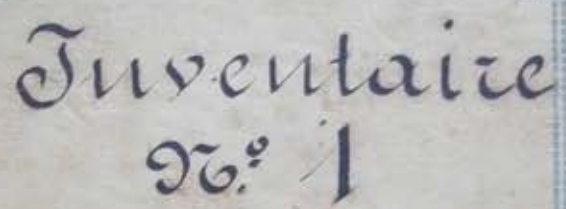 Inventaire
N.º 1